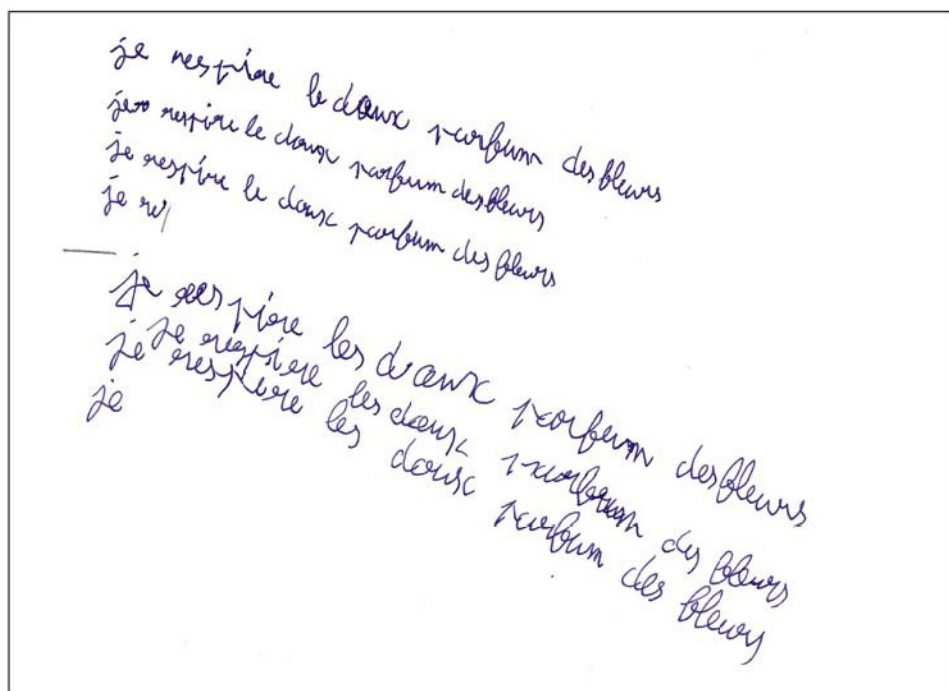 je respire le doux parfum des fleurs
je respire le doux parfum des fleurs
je respire le doux parfum des fleurs
je re
je respire les doux parfum des fleurs
je respire les doux parfum des fleurs
je respire les doux parfum des fleurs
je